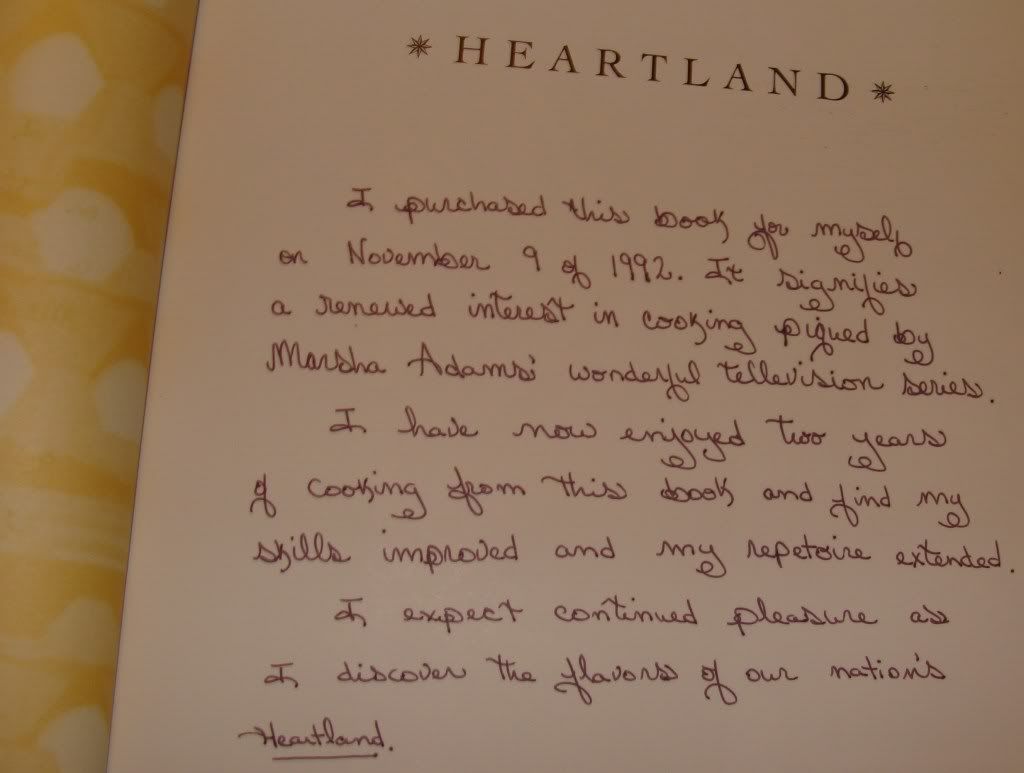 ✴ HEARTLAND ✴
I purchased this book for myself
on November 9 of 1992. It signifies
a renewed interest in cooking piqued by
Marsha Adams' wonderful tellevision series.
I have now enjoyed two years
of cooking from this book and find my
skills improved and my repetoire extended.
I expect continued pleasure as
I discover the flavors of our nation's
Heartland.